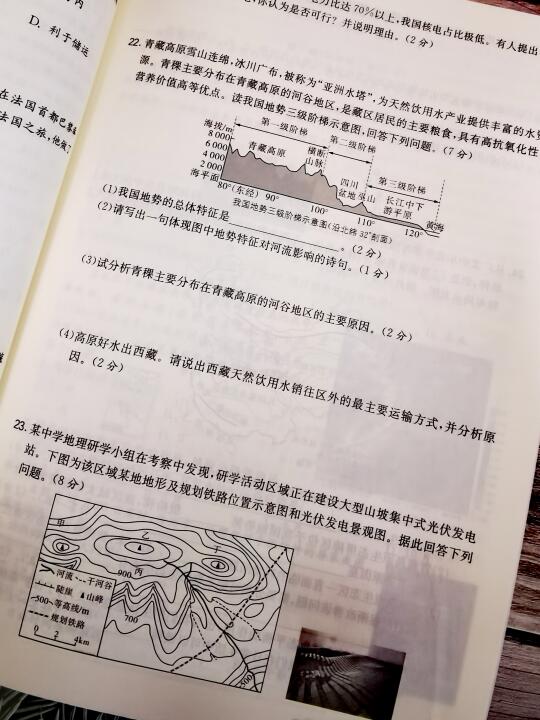 力比达70%以上，我国核电占比极低。有人提出
，你认为是否可行？并说明理由。（2分）
D. 利于储运
在法国首都巴黎
法国之旅，他做
22. 青藏高原雪山连绵，冰川广布，被称为“亚洲水塔”，为天然饮用水产业提供丰富的水资
源。青稞主要分布在青藏高原的河谷地区，是藏区居民的主要粮食，具有高抗氧化性
营养价值高等优点。读我国地势三级阶梯示意图，回答下列问题。（7分）
海拔/m
8 000
6 000
4 000
2 000
海平面
第一级阶梯
第二级阶梯
第三级阶梯
青藏高原
横断
山脉
四川
盆地
巫山
长江中下
游平原
黄海
80°(东经) 90° 100° 110° 120°
我国地势三级阶梯示意图(沿北纬32°剖面)
(1)我国地势的总体特征是________________。（2分）
(2)请写出一句体现图中地势特征对河流影响的诗句。（1分）
(3)试分析青稞主要分布在青藏高原的河谷地区的主要原因。（2分）
(4)高原好水出西藏。请说出西藏天然饮用水销往区外的最主要运输方式，并分析原
因。（2分）
23. 某中学地理研学小组在考察中发现，研学活动区域正在建设大型山坡集中式光伏发电
站。下图为该区域某地地形及规划铁路位置示意图和光伏发电景观图。据此回答下列
问题。（8分）
甲
乙
丁
丙
900
700
500
河流 干河谷
陡崖 ▲山峰
500 等高线/m
规划铁路
0 2 4km